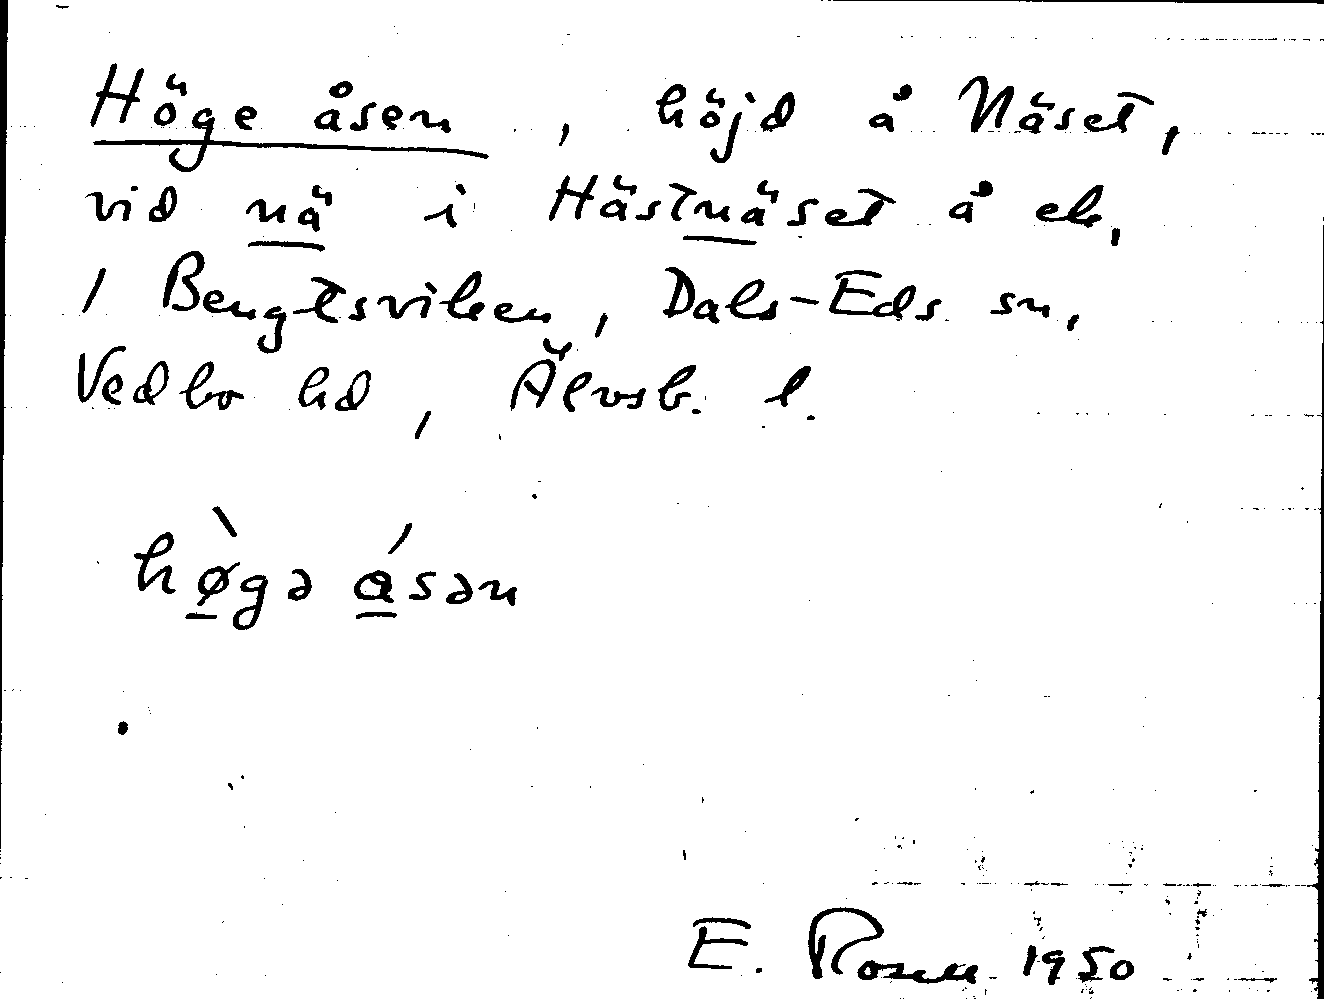 Höge åsen, höjd å Näset,
vid nä i Hästnäset å ek.
1 Bengtsviken, Dals-Eds sn,
Vedbo hd, Älvsb. l.
hø̀gə ásən
E. Rosen 1950